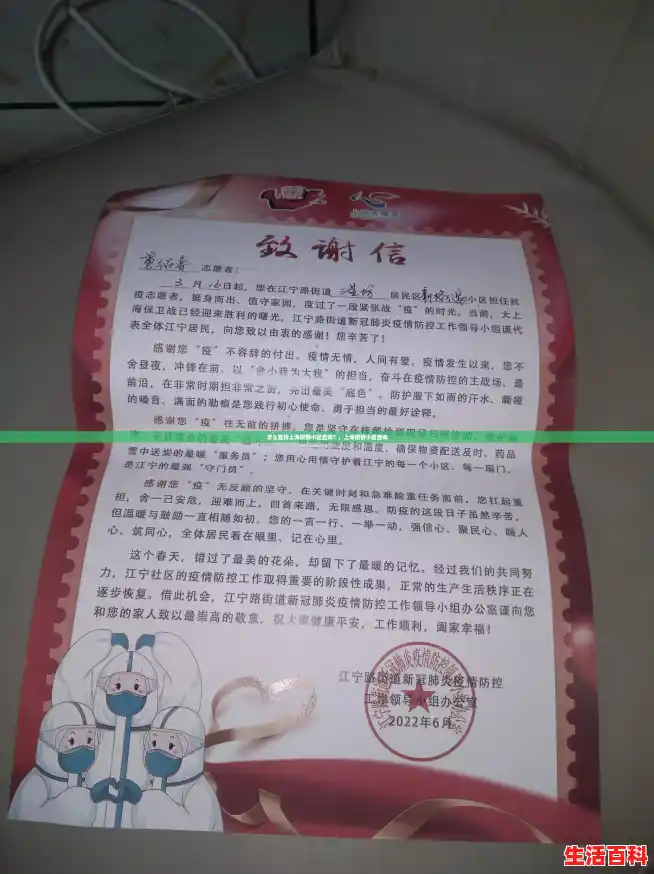 致谢信
志愿者：
三月16日起，您在江宁路街道 居民区 小区担任抗
疫志愿者，挺身而出、值守家园，度过了一段紧张战“疫”的时光。当前，大上
海保卫战已经迎来胜利的曙光，江宁路街道新冠肺炎疫情防控工作领导小组谨代
表全体江宁居民，向您致以由衷的感谢！您辛苦了！
感谢您“疫”不容辞的付出。疫情无情，人间有爱，疫情发生以来，您不
舍昼夜，冲锋在前、以“舍小我为大我”的担当，奋斗在疫情防控的主战场、最
前沿，在非常时期担非常之责，亮出最美“底色”。防护服下如雨的汗水、嘶哑
的嗓音、满面的勒痕是您践行初心使命、勇于担当的最好诠释。
感谢您“疫”往无前的拼搏。您是坚守在
怎么查找上海疫情小区查询?，上海疫情小区查询
度和温度，确保物资配送及时、药品
雪中送炭的最暖“服务员”；您用心用情守护着江宁的每一个小区、每一扇门，
是江宁的最强“守门员”。
感谢您“疫”无反顾的坚守，在关键时刻和急难险重任务面前，您扛起重
担，舍一己安危，迎难而上。回首来路，无限感恩。防疫的这段日子虽然辛苦，
但温暖与鼓励一直相随如初。您的一言一行、一举一动，强信心、聚民心、暖人
心、筑同心，全体居民看在眼里、记在心里。
这个春天，错过了最美的花朵，却留下了最暖的记忆。经过我们的共同努
力，江宁社区的疫情防控工作取得重要的阶段性成果，正常的生产生活秩序正在
逐步恢复。借此机会，江宁路街道新冠肺炎疫情防控工作领导小组办公室谨向您
和您的家人致以最崇高的敬意，祝大家健康平安，工作顺利，阖家幸福！
江宁路街道新冠肺炎疫情防控
工作领导小组办公室
2022年6月
生活百科